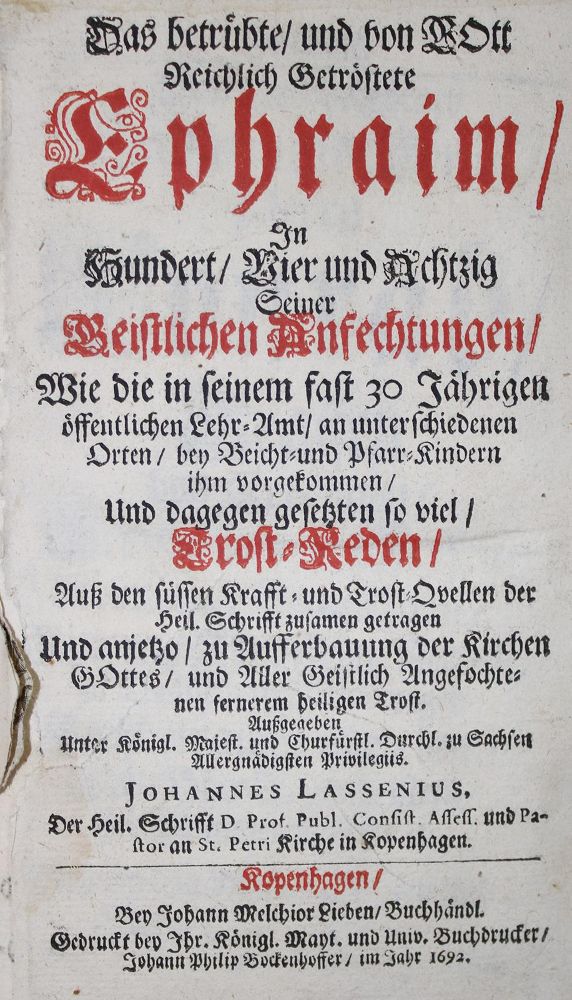 Das betrübte/ und von GOtt
Reichlich Getröstete
Ephraim/
In
Hundert/ Vier und Achtzig
Seiner
Geistlichen Anfechtungen/
Wie die in seinem fast 30 Jährigen
öffentlichen Lehr-Amt/ an unterschiedenen
Orten/ bey Beicht-und Pfarr-Kindern
ihm vorgekommen/
Und dagegen gesetzten so viel/
Trost-Reden/
Auß den süssen Krafft-und Trost-Qvellen der
Heil. Schrifft zusamen getragen
Und anjetzo/ zu Aufferbauung der Kirchen
GOttes/ und Aller Geistlich Angefochte-
nen fernerem heiligen Trost.
Außgegeben
Unter Königl. Majest. und Churfürstl. Durchl. zu Sachsen
Allergnädigsten Privilegiis.
JOHANNES LASSENIUS,
Der Heil. Schrifft D. Prof. Publ. Consist. Assess. und Pa-
stor an St. Petri Kirche in Kopenhagen.
Kopenhagen/
Bey Johann Melchior Lieben/ Buchhändl.
Gedruckt bey Ihr. Königl. Mayt. und Univ. Buchdrucker/
Johann Philip Bockenhoffer/ im Jahr 1692.